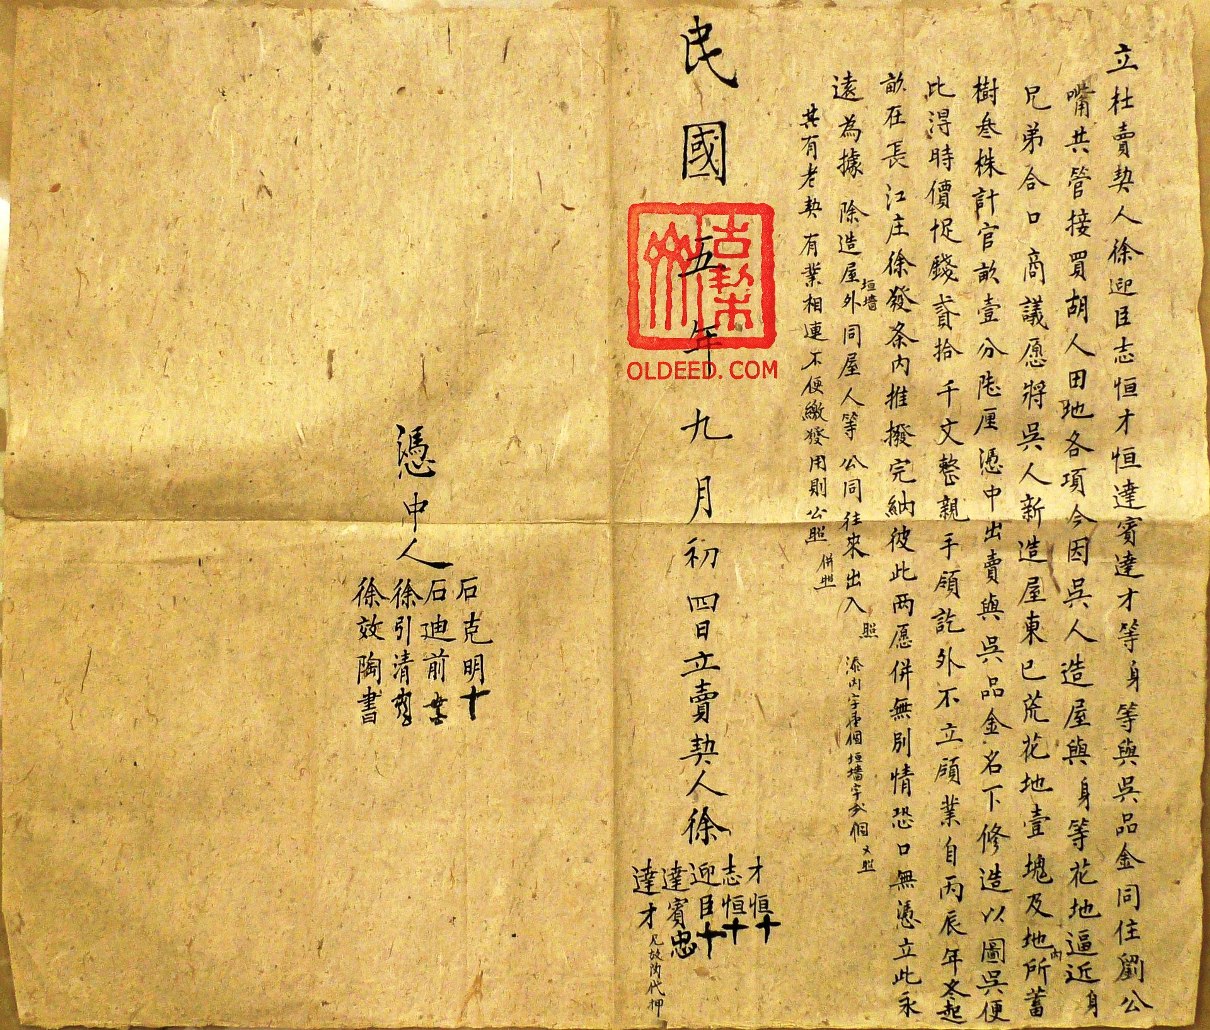 立杜賣契人徐迎臣志恒才恒達賓達才等身等與吳品金同住劉公
嘴共管接買胡人田地各項今因吳人造屋與身等花地逼近身
兄弟合口商議愿將吳人新造屋東已荒花地壹塊及地內所蓄
樹叁株計官畝壹分陸厘憑中出賣與吳品金名下修造以圖吳便
比得時價足錢貳拾千文整親手領訖外不立領業自丙辰年冬起
畝在長江庄徐發条內推撥完納彼此两愿併無別情恐口無憑立此永
遠為據 除造屋外垣墻同屋人等公同往來出入 照 添內字壹個垣墻字貳個 又照
其有老契有業相連不便繳發用則公照 併照
民國五年九月初四日立賣契人徐
才恒十
志恒十
迎臣十
達賓忠
達才 兄效陶代押
古契
OLDEED.COM
憑中人
石克明十
石迪前
徐引清
徐效陶書